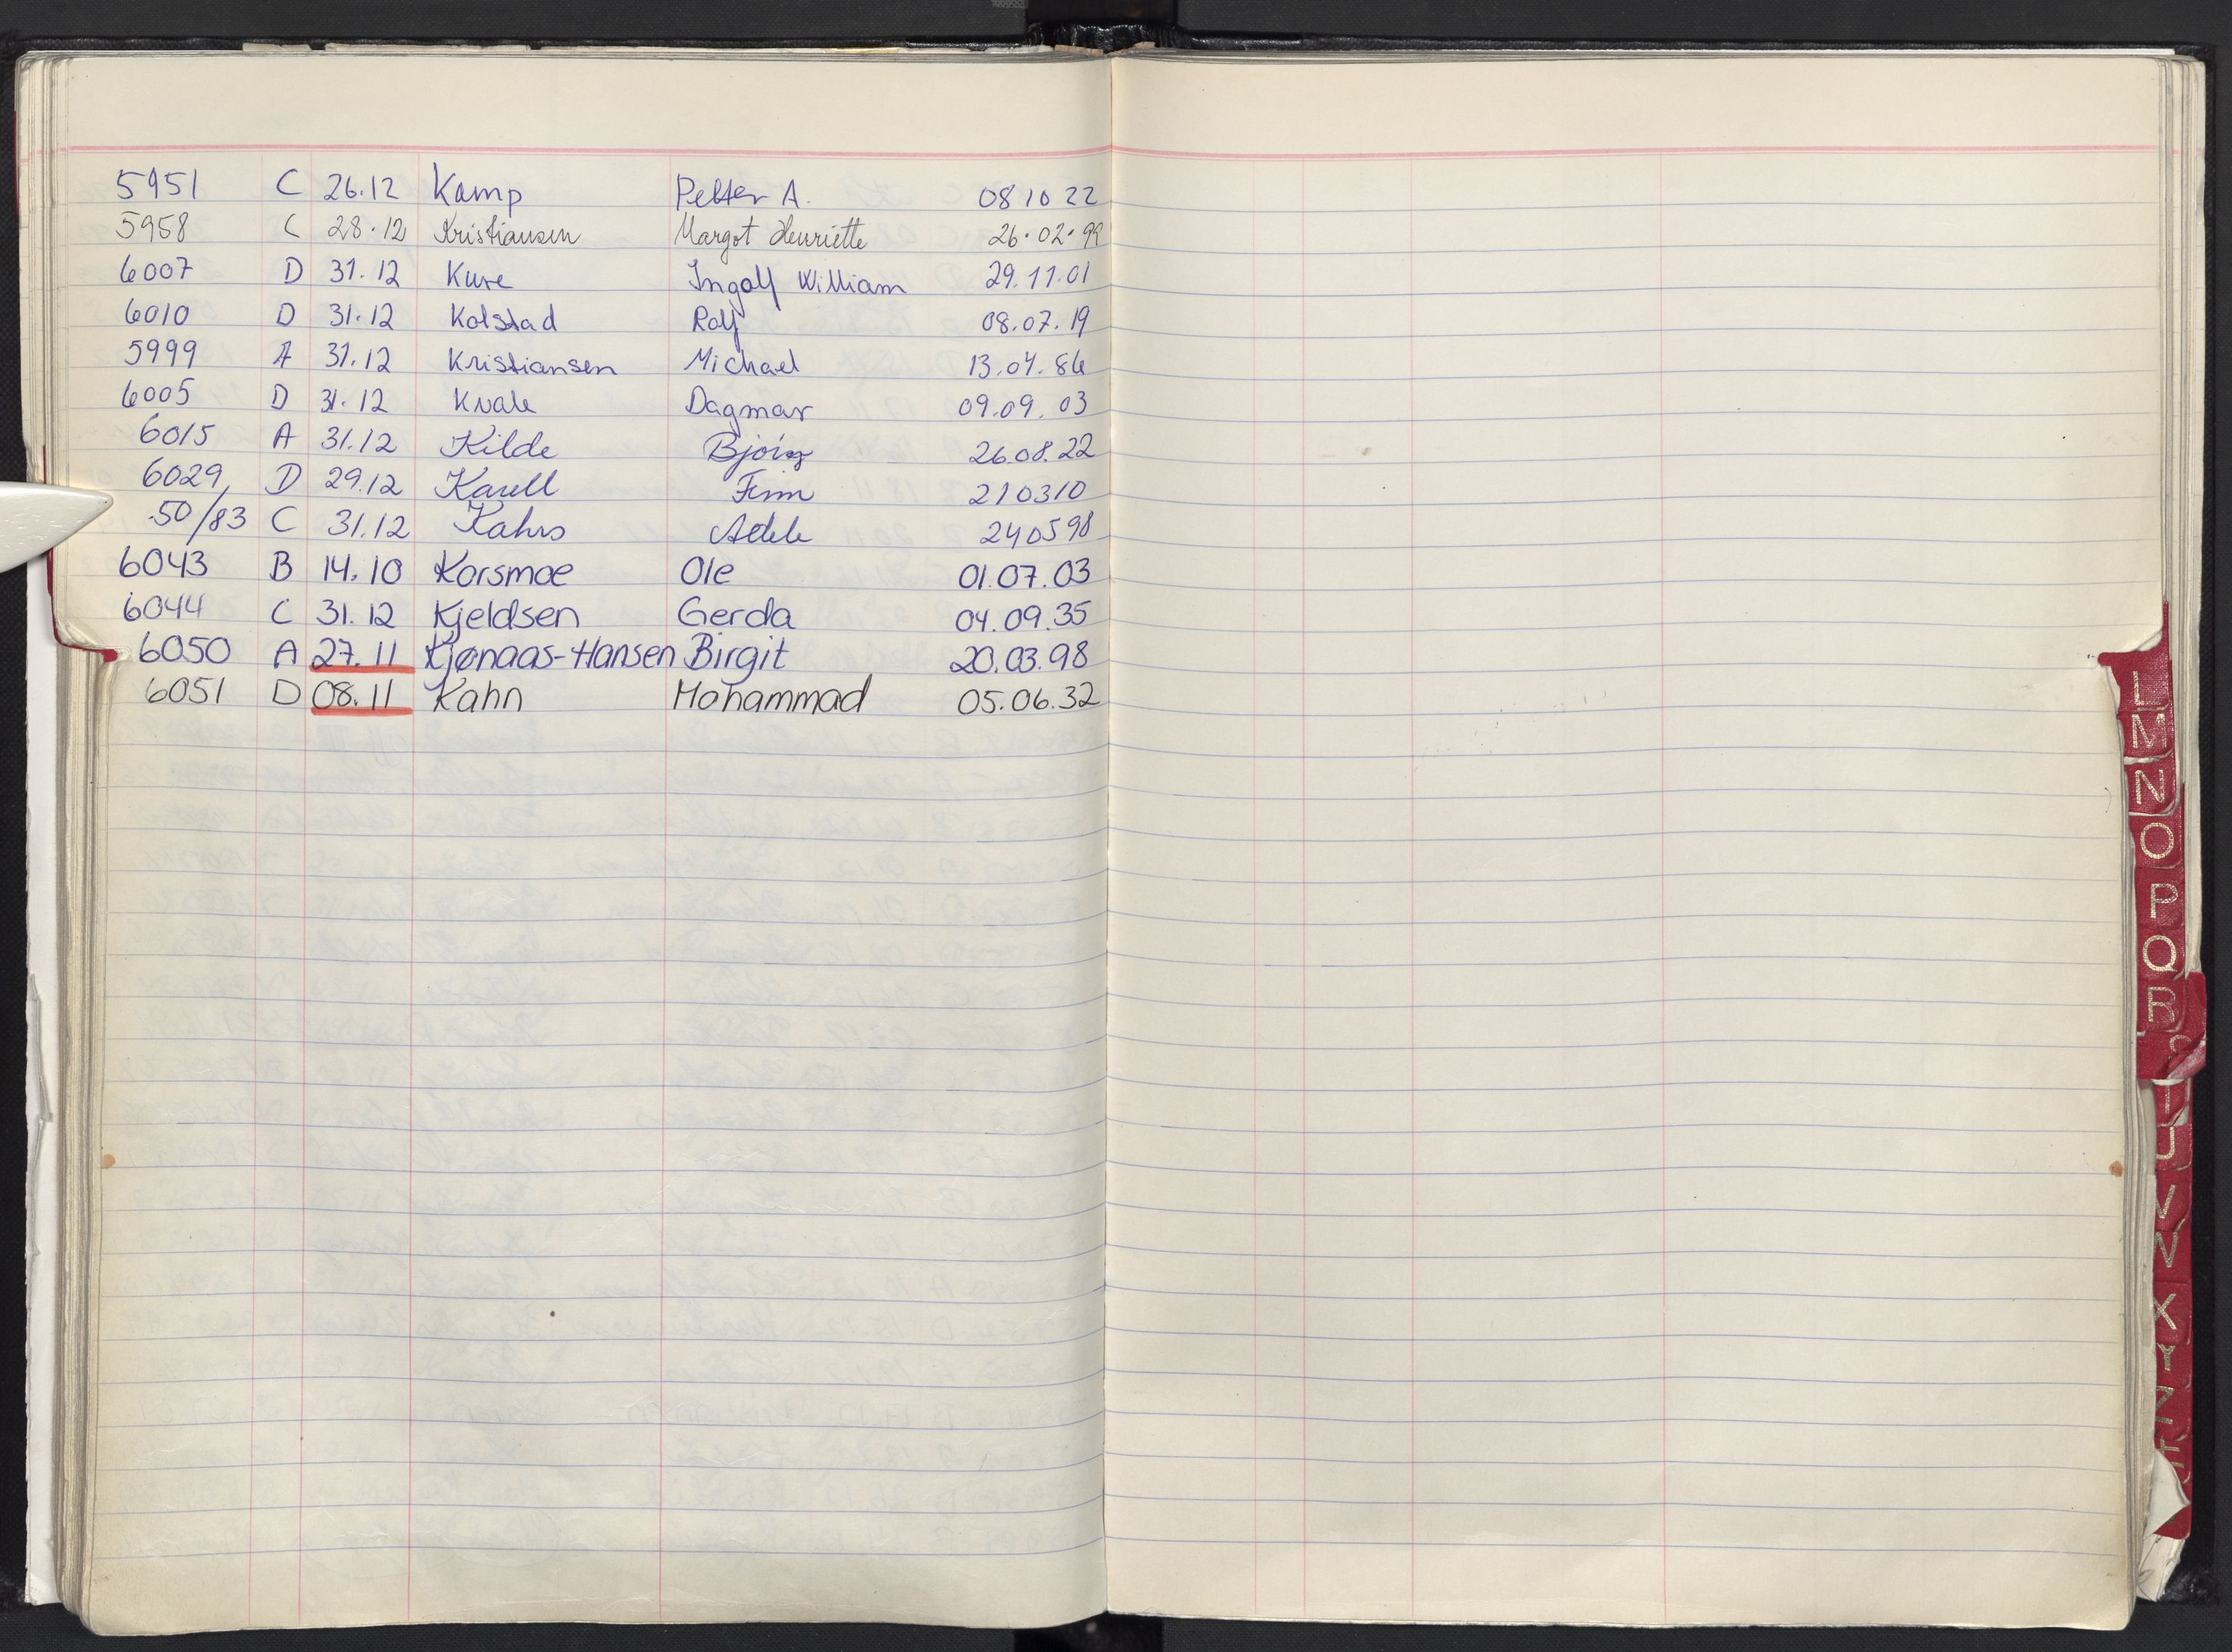 5951 C 26.12 Kamp Petter A. 08 10 22
5958 C 28.12 Kristiansen Margot Henriette 26.02.99
6007 D 31.12 Kure Ingolf William 29.11.01
6010 D 31.12 Kolstad Rolf 08.07.19
5999 A 31.12 Kristiansen Michael 13.04.86
6005 D 31.12 Kvale Dagmar 09.09.03
6015 A 31.12 Kilde Bjørg 26.08.22
6029 D 29.12 Karell Finn 210310
50/83 C 31.12 Kahrs Adele 240598
6043 B 14.10 Korsmoe Ole 01.07.03
6044 C 31.12 Kjeldsen Gerda 04.09.35
6050 A 27.11 Kjønaas-Hansen Birgit 20.03.98
6051 D 08.11 Kahn Mohammad 05.06.32
L
M
N
O
P
Q
R
S
T
U
V
W
X
Y
Z